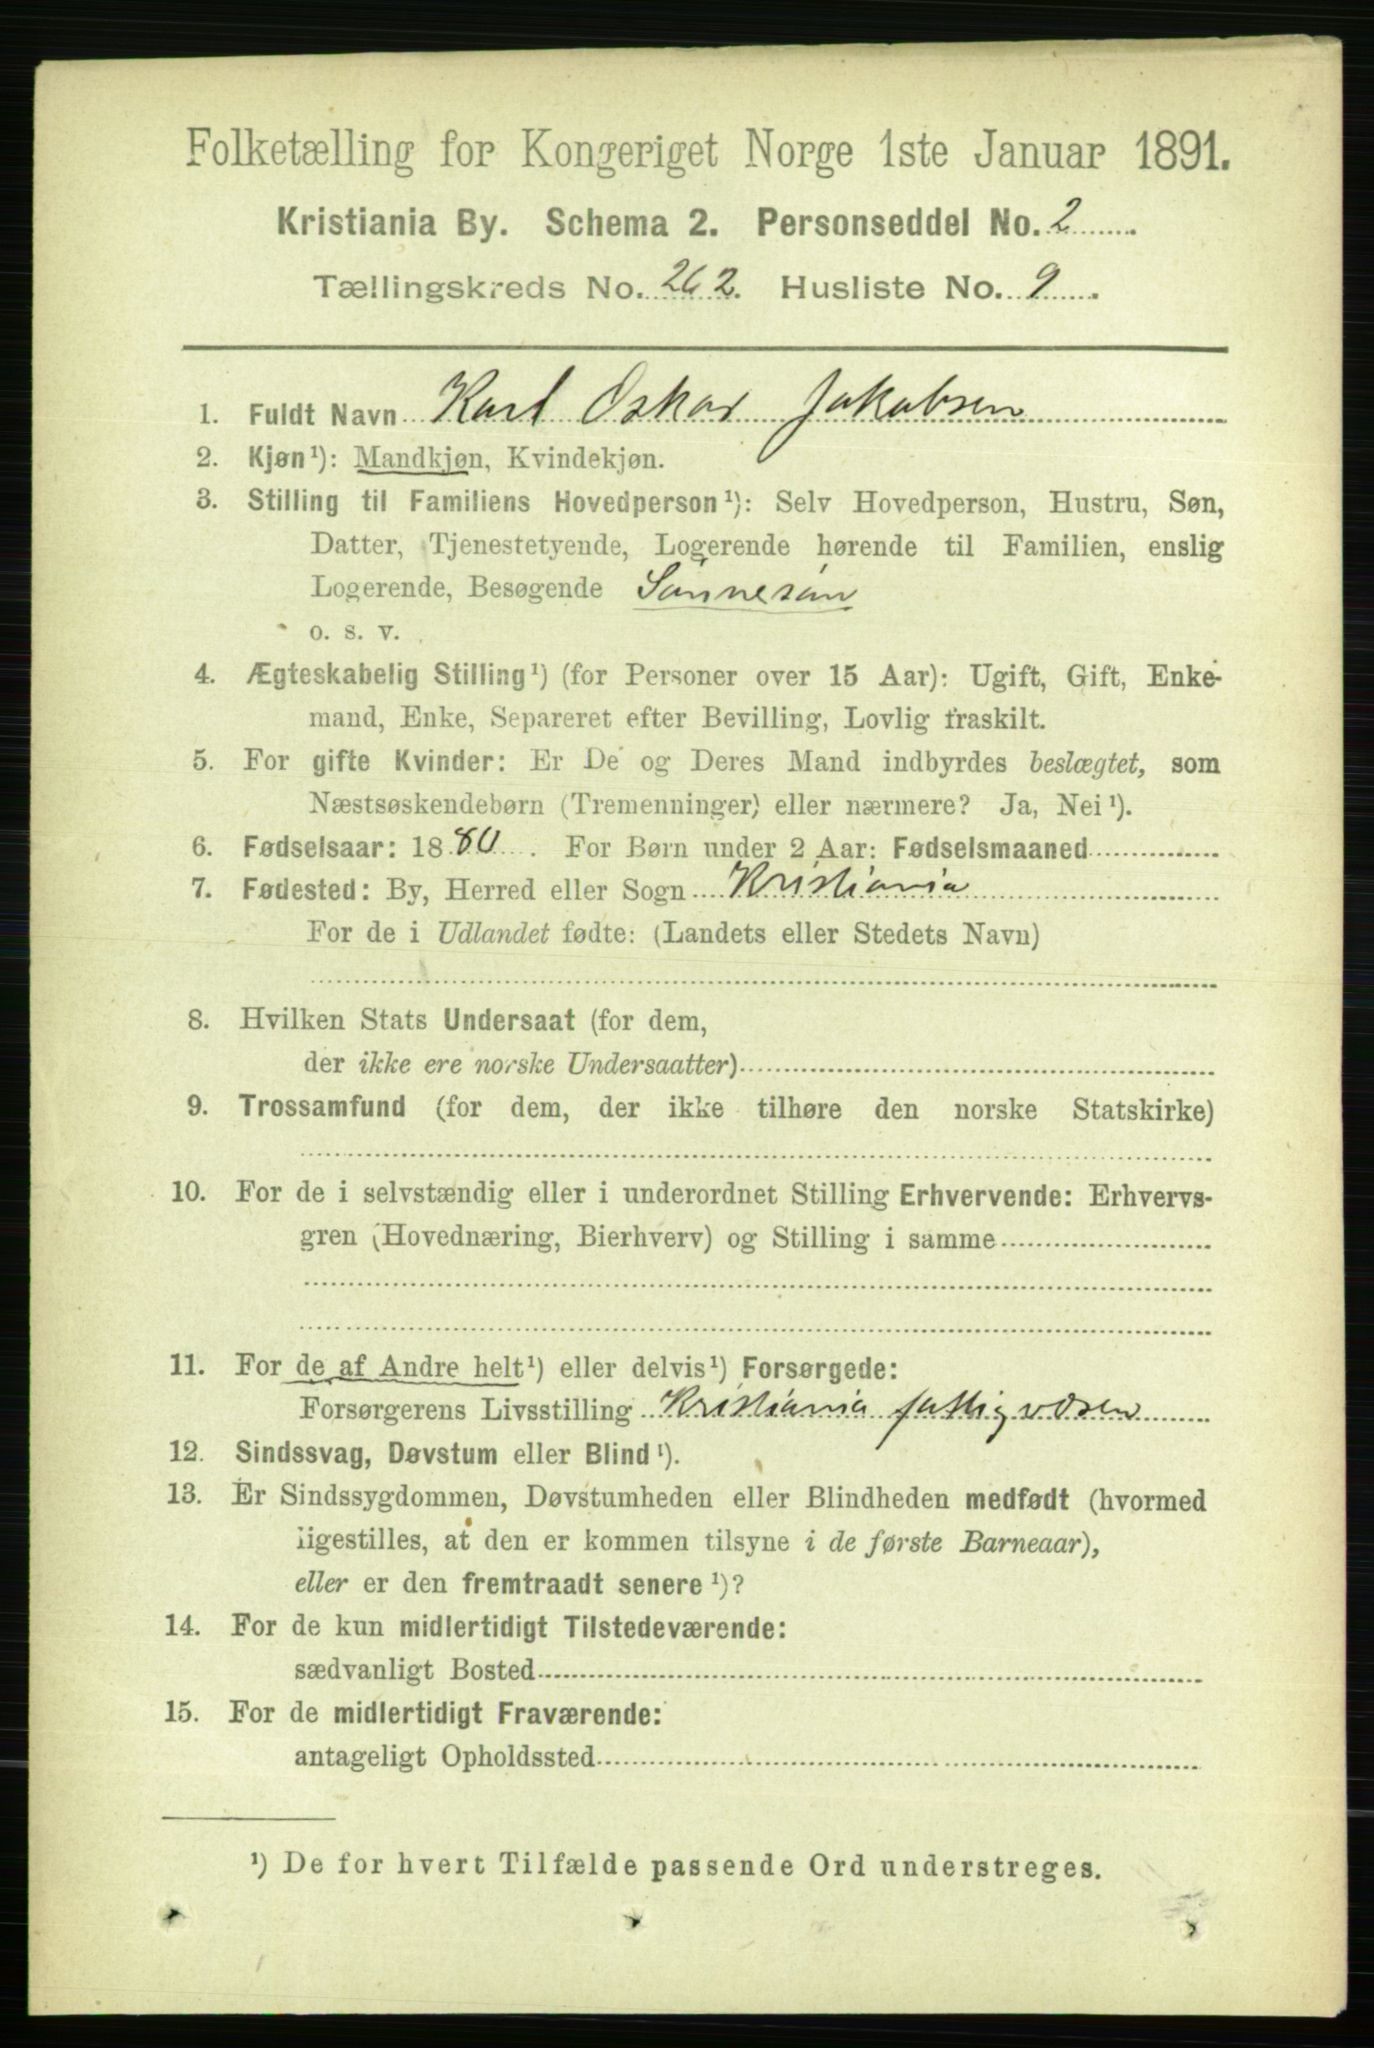 Folketælling for Kongeriget Norge 1ste Januar 1891.
Kristiania By. Schema 2. Personseddel No. 2
Tællingskreds No. 262. Husliste No. 9
1. Fuldt Navn Karl Oskar Jakobsen
2. Kjøn¹): Mandkjøn, Kvindekjøn.
3. Stilling til Familiens Hovedperson¹): Selv Hovedperson, Hustru, Søn,
Datter, Tjenestetyende, Logerende hørende til Familien, enslig
Logerende, Besøgende Sønnesøn
o. s. v.
4. Ægteskabelig Stilling¹) (for Personer over 15 Aar): Ugift, Gift, Enke-
mand, Enke, Separeret efter Bevilling, Lovlig fraskilt.
5. For gifte Kvinder: Er De og Deres Mand indbyrdes beslægtet, som
Næstsøskendebørn (Tremenninger) eller nærmere? Ja, Nei¹).
6. Fødselsaar: 1880. For Børn under 2 Aar: Fødselsmaaned
7. Fødested: By, Herred eller Sogn Kristiania
For de i Udlandet fødte: (Landets eller Stedets Navn)
8. Hvilken Stats Undersaat (for dem,
der ikke ere norske Undersaatter)
9. Trossamfund (for dem, der ikke tilhøre den norske Statskirke)
10. For de i selvstændig eller i underordnet Stilling Erhvervende: Erhvervs-
gren (Hovednæring, Bierhverv) og Stilling i samme
11. For de af Andre helt¹) eller delvis¹) Forsørgede:
Forsørgerens Livsstilling Kristiania fattigvæsen
12. Sindssvag, Døvstum eller Blind¹).
13. Er Sindssygdommen, Døvstumheden eller Blindheden medfødt (hvormed
ligestilles, at den er kommen tilsyne i de første Barneaar),
eller er den fremtraadt senere¹)?
14. For de kun midlertidigt Tilstedeværende:
sædvanligt Bosted
15. For de midlertidigt Fraværende:
antageligt Opholdssted
¹) De for hvert Tilfælde passende Ord understreges.